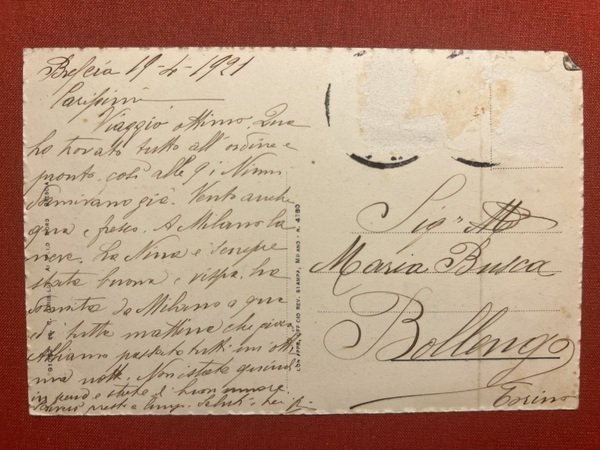 Brescia 19-4-1921
Carissimi
Viaggio ottimo. Qua
ho trovato tutto all'ordine e
pronto, così alle 9 i Ninni
dormivano già. Vento anche
qua e fresco. A Milano la
neve. La Nina è sempre
stata buona e vispa, ha
dormito da Milano a qua
è tutta mattina che gioca
Abbiamo passato tutti un'otti
ma notte. Non state quindi
in pena e state di buon umore.
presto a lungo. Saluti
Sig.ra M
Maria Busca
Bollengo
Torino
UFFICIO REV. STAMPA, MILANO - N. 4180